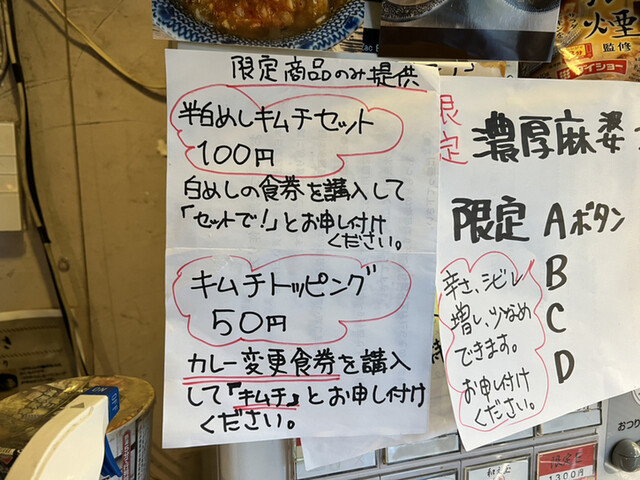 限定商品のみ提供
半白めしキムチセット
100円
白めしの食券を講入して
「セットで!」とお申し付け
ください。
キムチトッピング
50円
カレー変更食券を講入
して「キムチ」とお申し付け
ください。
限定
濃厚麻婆
限定 Aボタン
B
C
D
辛さ、シビレ
増し、少なめ
できます。
お申し付け
ください。
監修
限定
1300円
おつり